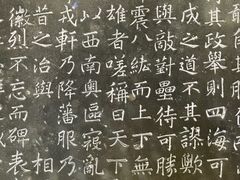 其政舉則四海可
成之道不其謬歟
與敵對壘待可勝
震八紘而上下無
雄者嗟稱曰天下
以西南奧區寇亂
戎軒乃降藩服乃
昔之治與 相
徽烈不忘而碑表